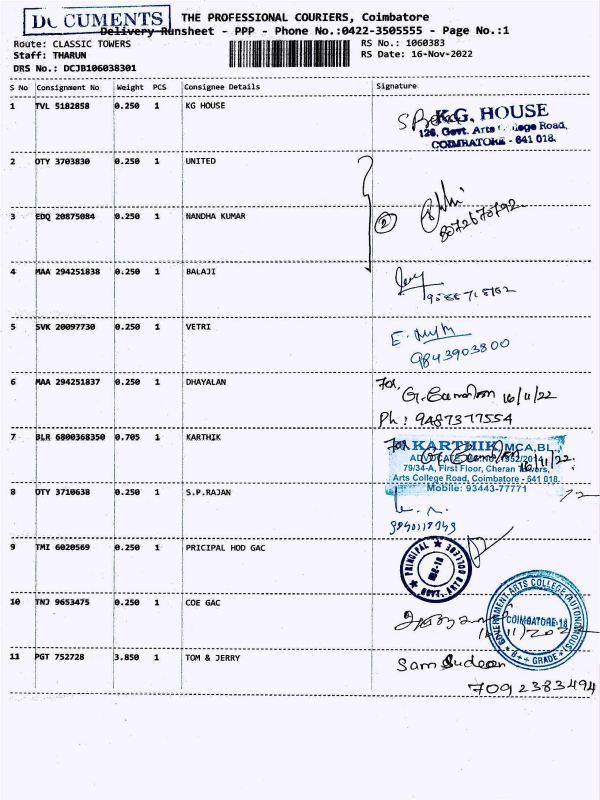 DOCUMENTS
THE PROFESSIONAL COURIERS, Coimbatore
Delivery Runsheet - PPP - Phone No.:0422-3505555 - Page No.:1
Route: CLASSIC TOWERS
Staff: THARUN
DRS No.: DCJB106038301
RS No.: 1060383
RS Date: 16-Nov-2022
S No Consignment No Weight PCS Consignee Details Signature
1 TVL 5182858 0.250 1 KG HOUSE
K.G. HOUSE
126, Govt. Arts College Road,
COIMBATORE - 641 018.
2 OTY 3703830 0.250 1 UNITED
3 EDQ 20875084 0.250 1 NANDHA KUMAR
2
8072670792
4 MAA 294251838 0.250 1 BALAJI
5 SVK 20097730 0.250 1 VETRI
9843903800
6 MAA 294251837 0.250 1 DHAYALAN
For
16/11/22
Ph: 9487377554
7 BLR 6800368350 0.705 1 KARTHIK
For
KARTHIK, MCA,BL.,
ADVOCATE
16/11/22
79/34-A, First Floor, Cheran Towers,
Arts College Road, Coimbatore - 641 018.
Mobile: 93443-77771
8 OTY 3710638 0.250 1 S.P.RAJAN
9 TMI 6020569 0.250 1 PRICIPAL HOD GAC
PRINCIPAL
GOVT. ARTS COLLEGE
10 TNJ 9653475 0.250 1 COE GAC
GOVERNMENT ARTS COLLEGE (AUTONOMOUS)
COIMBATORE-18
GRADE
11 PGT 752728 3.850 1 TOM & JERRY
7092383494